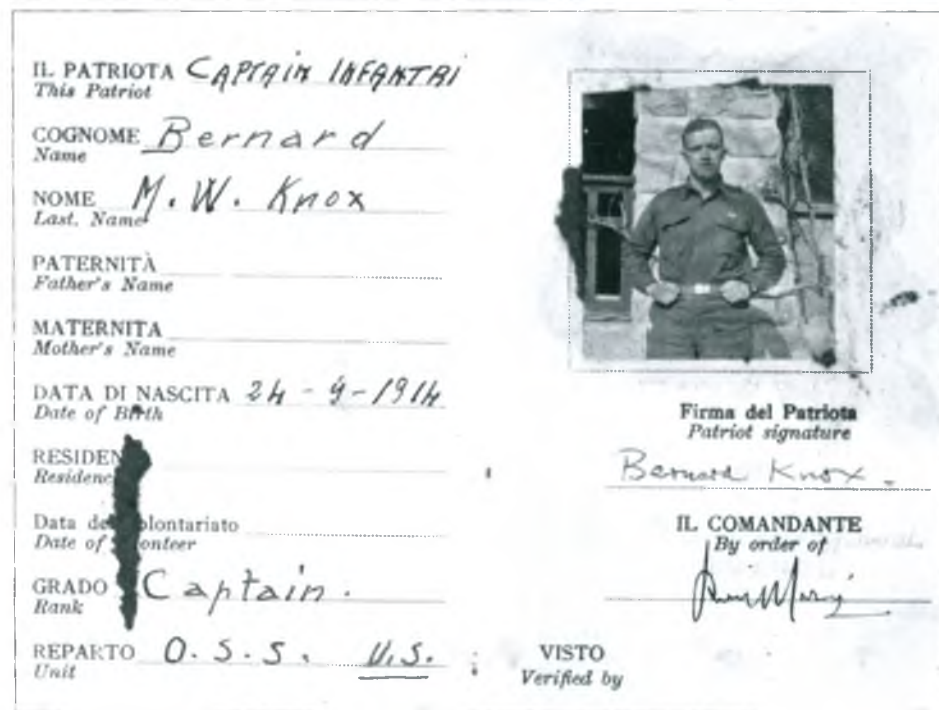 IL PATRIOTA CAPTAIN INFANTRI
This Patriot
COGNOME Bernard
Name
NOME M. W. Knox
Last. Name
PATERNITÀ
Father's Name
MATERNITA
Mother's Name
DATA DI NASCITA 24 - 9 - 1914
Date of Birth
RESIDEN
Residenc
Data de olontariato
Date of onteer
GRADO Captain.
Rank
REPARTO O. S. S. U.S.
Unit
Firma del Patriota
Patriot signature
Bernard Knox.
IL COMANDANTE
By order of
VISTO
Verified by